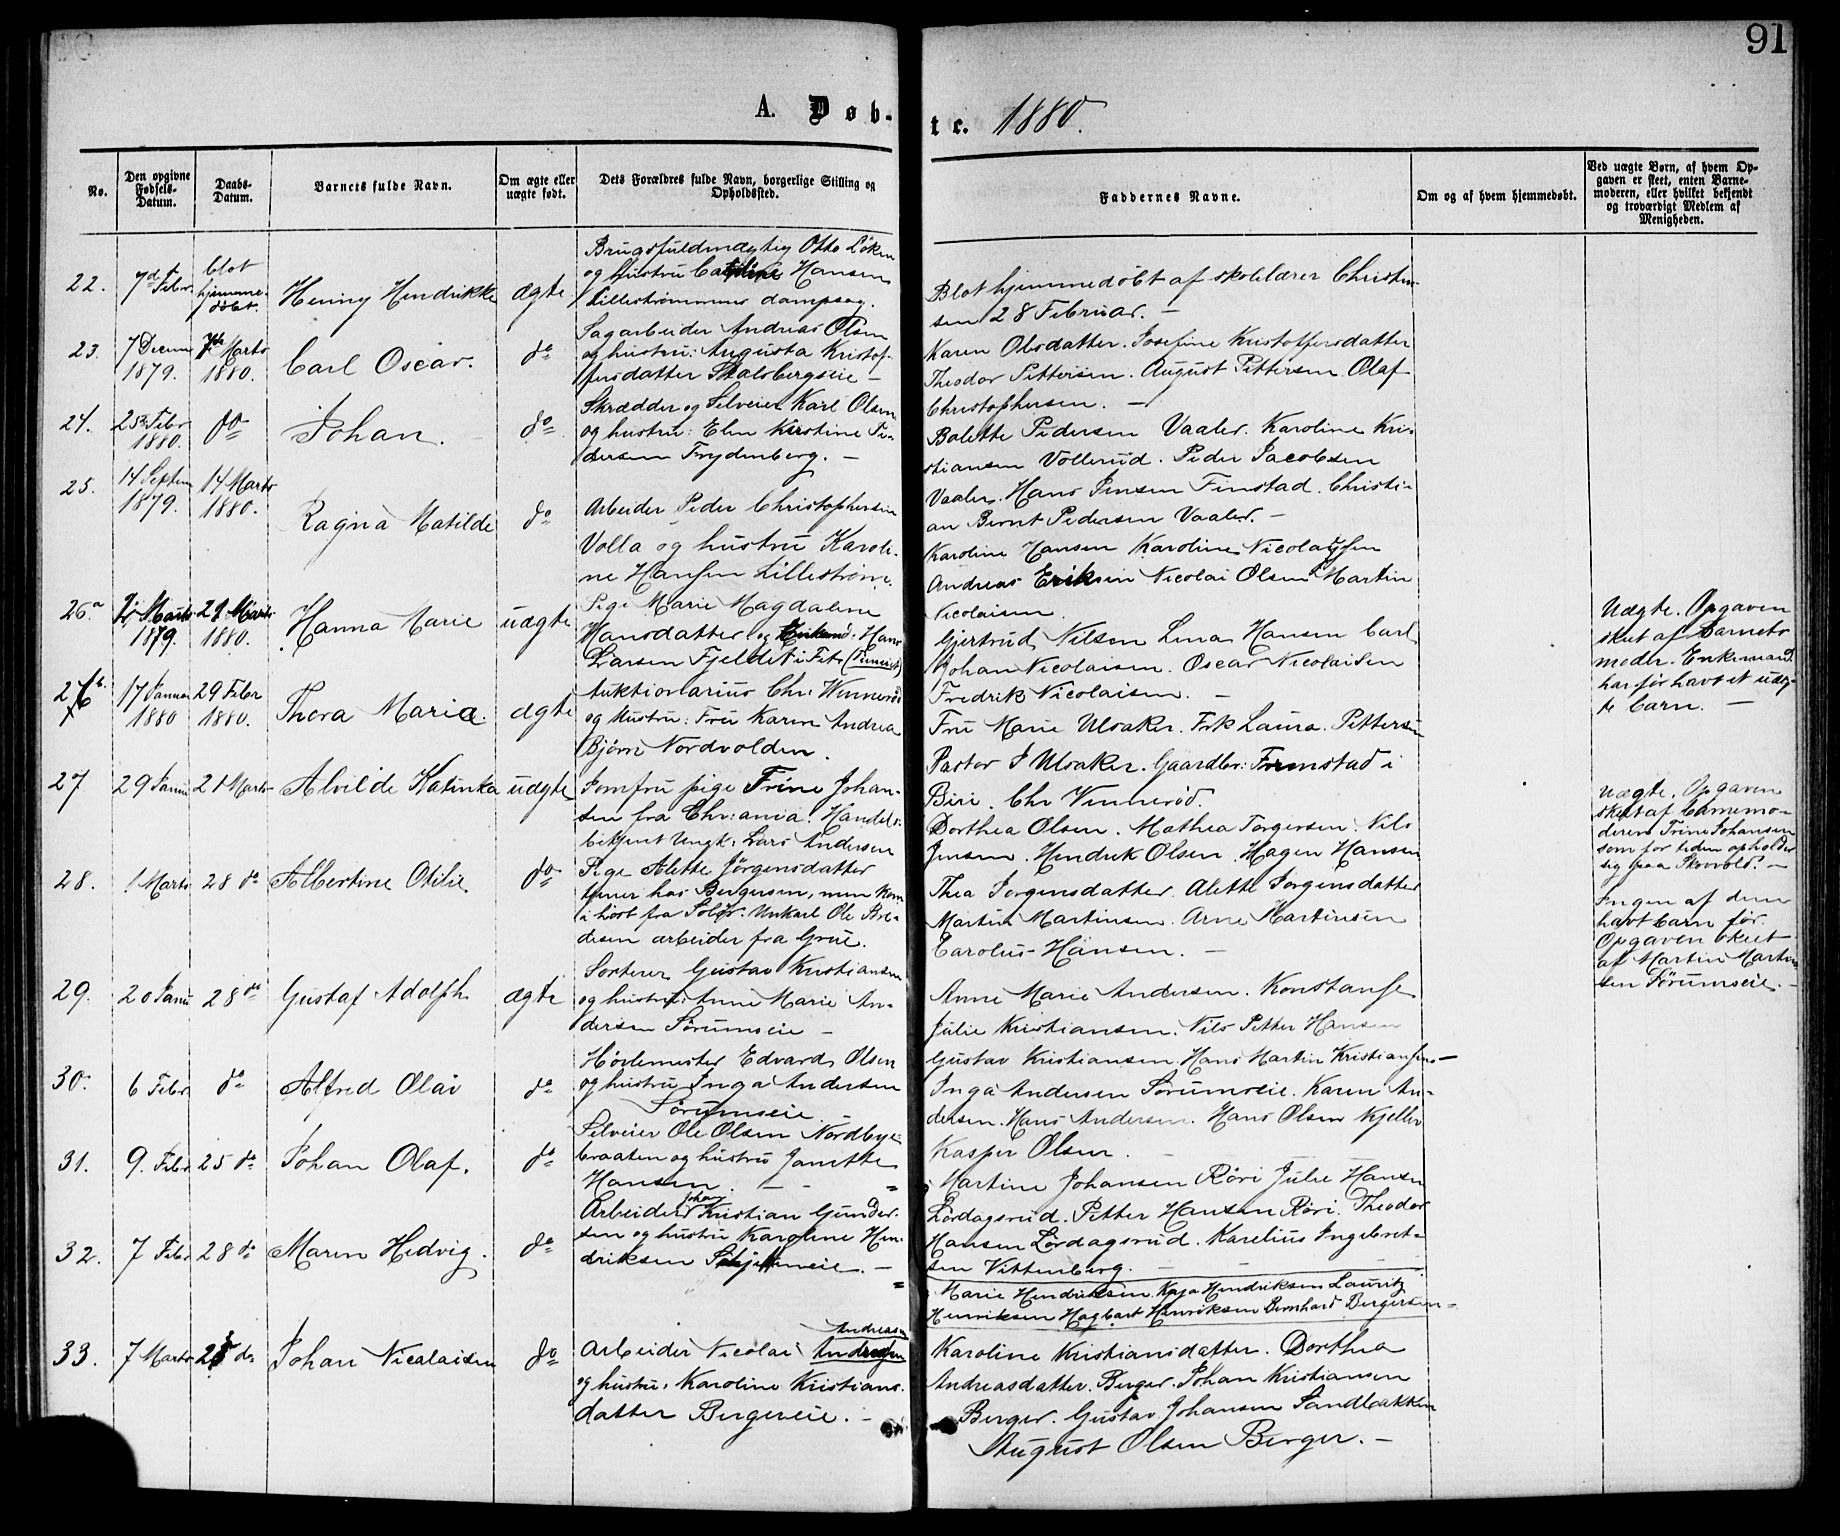 91
A. Døb-
te. 1880.
No.
Den opgivne Fødsels-Datum.
Daabs-Datum.
Barnets fulde Navn.
Om ægte eller uægte født.
Dets Forældres fulde Navn, borgerlige Stilling og Opholdssted.
Faddernes Navne.
Om og af hvem hjemmedøbt.
Ved uægte Børn, af hvem Opgaven er skeet, enten Barnemoderen, eller hvilket bekjendt og troværdigt Medlem af Menigheden.
22.
7de Febr
blot
hjemme-
døbt.
Henny Hendrikke
ægte
Brugsfuldmægtig Otto Løken
og hustru Hansen
Lillestrømmens dampsag.
Blot hjemmedøbt af skolelærer Christen-
sen 28 Februar. -
23.
7 Decem
1879.
7de Marts
1880.
Carl Oscar.
do
Sagarbeider Andreas Olsen
og hustru: Augusta Kristof-
fersdatter Skalsbergseie -
Karen Olsdatter. Josefine Kristoffersdatter
Theodor Pettersen. August Pettersen. Olaf
Christophersen. -
24.
25 Febr
1880.
do
Johan.
do
Skrædder og Selveier Karl Olsen
og hustru: Elen Kirstine Pe-
dersen Frydenberg. -
Bolette Pedersen Vaaler. Karoline Kri-
stiansen Vollerud. Peder Jacobsen
Vaaler. Hans Jensen Finstad. Christi-
an Bernt Pedersen Vaaler. -
25.
14 Septem
1879.
14 Marts
1880.
Ragna Matilde
do
Arbeider Peder Christophersen
Volla og hustru Karoli-
ne Hansen Lillestrøm.
Karoline Hansen Karoline Nicolaysen
Andreas Eriksen Nicolai Olsen Martin
Nicolaisen
26a
Marts
1879.
21 Marts
1880.
Hanna Marie
uægte
Pige Marie Magdalene
Hansdatter og Enkemd. Hans
Larsen Fjeldet i Fet
Gjertrud Nilsen Lina Hansen Carl
Johan Nicolaisen. Oscar Nicolaisen
Fredrik Nicolaisen. -
Uægte. Opgaven
skeet af Barnets
moder. Enkemand
har før havt et uæg-
te barn. -
26b.
17 Januar
1880
29 Febr
1880.
Thora Maria.
ægte
Auktionarius Chr: Vennerød
og Hustru: Fru Karen Andrea
Bjørn Nordvolden.
Fru Marie Ulsaker. Frk Laura. Pettersen
Pastor J Ulsaker. Gaardbr: Framstad i
Biri. Chr Vinnerød.
27
29 Janu
21 Marts
Alvilde Katinka
uægte
Jomfru pige Trine Johan-
sen fra Chr:ania. Handels-
betjent Ungk: Lars Andersen
Dorthea Olsen. Mathea Torgersen. Nils
Jensen. Hendrik Olsen. Hagen Hansen
Uægte. Opgaven
skeet af Barnemo-
deren Trine Johansen
som for tiden opholder
sig paa Skovold. -
28.
1 Marts
28 do
Albertine Otilie
do
Pige Alette Jørgensdatter
tjener hos Bergersen, men kom
i høst fra Solør. Unkarl Ole Pe-
dersen arbeider fra Grue.
Thea Jorgensdatter. Alette Jorgensdatter
Martin Martinsen. Arne Martinsen
Carolus Hansen. -
Ingen af dem
havt barn før.
Opgaven skeet
af Martin Martin
sen Sørumseie. -
29.
20 Janu
28 de
Gustaf Adolph.
ægte
Sorterer Gustav Kristiansen
og hustru: Anne Marie An-
dersen Sørumseie -
Anne Marie Andersen. Konstanse
Julie Kristiansen. Nils Petter Hansen
Gustav Kristiansen. Hans Martin Kristiansen -
30.
6 Febr
do
Alfred Olai
do
Høvlemester Edvard Olsen
og hustru Inga Andersen
Sørumseie -
Inga Andersen Sørumseie. Karen An-
dersen. Hans Andersen. Hans Olsen Kjeller
Kasper Olsen. -
31.
9. Febr
25 do
Johan Olaf.
do
Selveier Ole Olsen Nordbye-
braaten og hustru Janette
Hansen. - - =
Martine Johansen Røri Julie Hansen
Lørdagsrud. Petter Hansen Røri. Theodor
Hansen Lørdagsrud. Karelius Ingebret-
sen Vittenberg. -
32.
7 Febr
28 do
Maren Hedvig.
do
Johan
Arbeider Kristian Gunder-
sen og hustru Karoline Hen-
driksen Skjetteneie. -
=
Marie Hendriksen. Kaja Hendriksen Lauritz
Henriksen Hagbart Henriksen Bernhard Bergersen =
33.
7 Marts
25 do
Johan Nicolaisen
do
Andreasen
Arbeider Nicolai Andresen
og hustru: Karoline Kristians-
datter Bergereie. -
Karoline Kristiansdatter. Dorthea
Andreasdatter. Berger. Johan Kristiansen
Berger. Gustav Johansen Sandbakken
August Olsen Berger. -